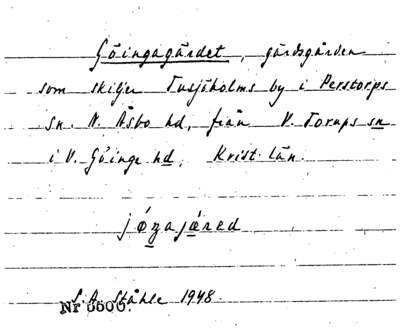 Göingagärdet, gärdsgården
som skiljer Tusjöholms by i Perstorps
sn. N. Åsbo hd, från V. Torups sn
i V. Göinge hd, Krist. län.
józajǽred
S.A. Ståhle 1948.
Nr 5500.